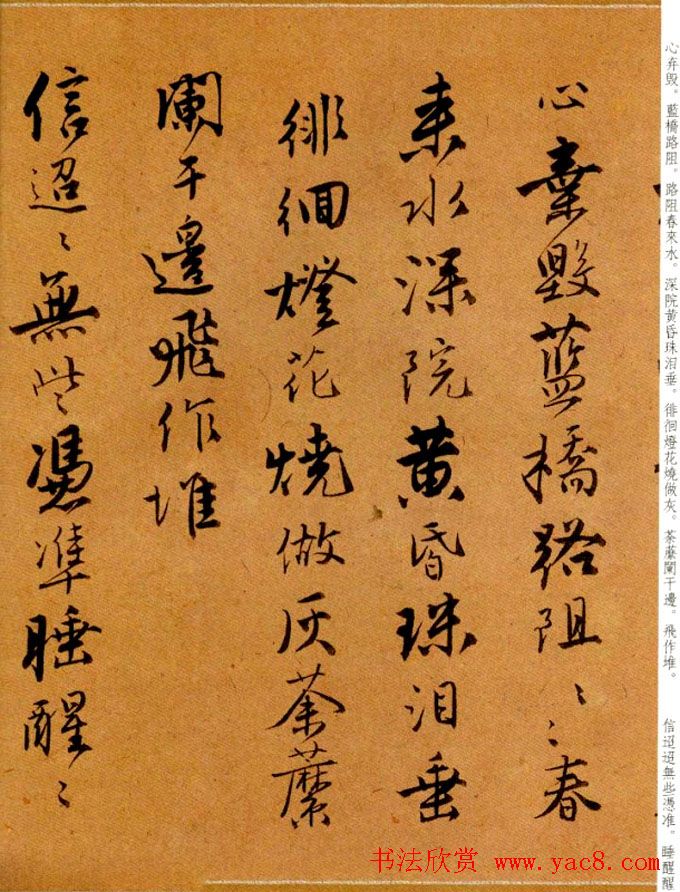 心弃毁。藍橋路阻。路阻春來水。深院黄昏珠泪垂。徘徊燈花燒做灰。荼蘼闌干邊。飛作堆。 信迢迢無些憑准。睡醒醒
心棄毀藍橋路阻〻〻春
来水深院黄昏珠泪垂
徘徊燈花燒做灰荼蘼
闌干邊飛作堆
信迢〻無些憑準睡醒〻
书法欣赏 www.yac8.com